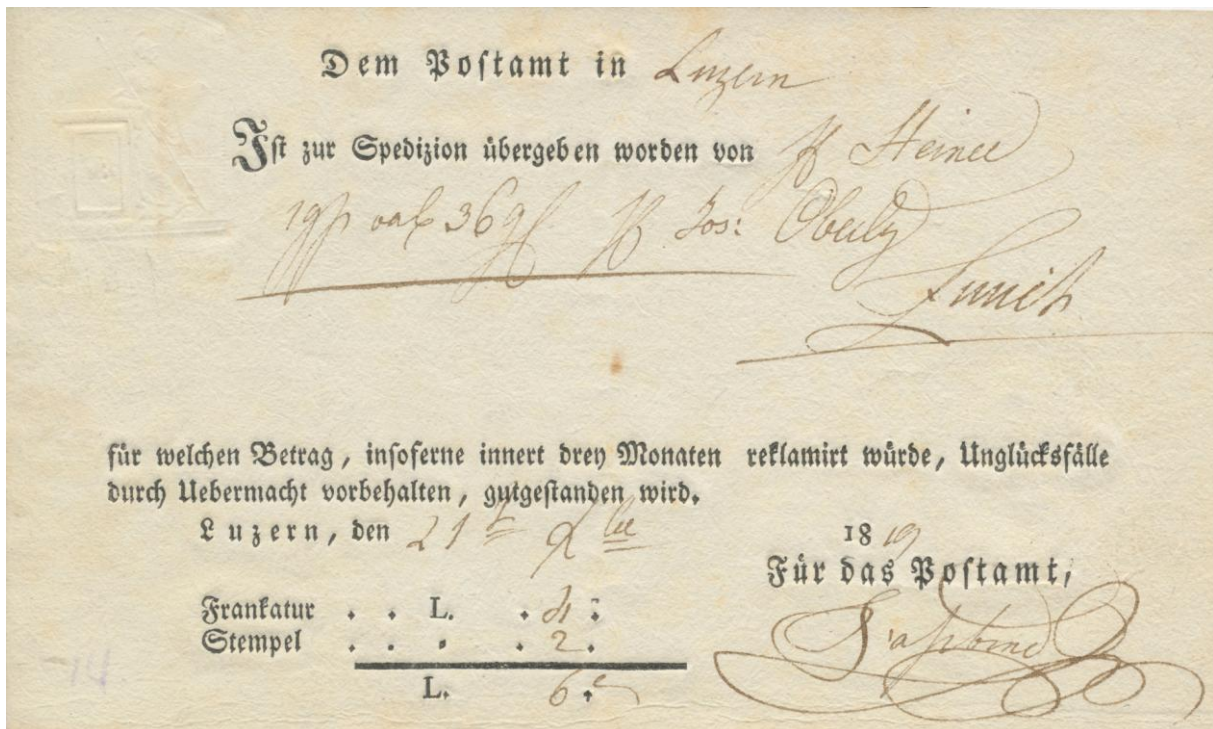 Dem Postamt in Luzern
Ist zur Spedizion übergeben worden von
36 Jos:
Zurich
für welchen Betrag, insoferne innert drey Monaten reklamirt würde, Unglücksfälle
durch Uebermacht vorbehalten, gutgestanden wird.
Luzern, den 21t 1819
Für das Postamt,
Frankatur . . L. . 4 :
Stempel . . . . 2 .
L. 6 .